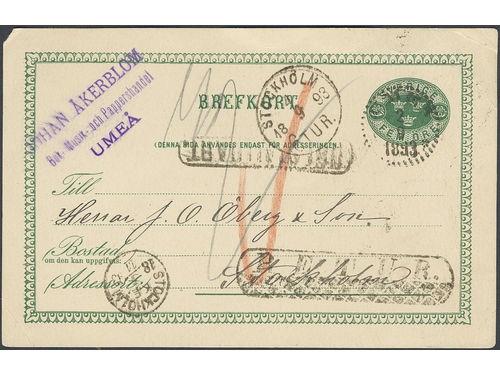 JOHAN ÅKERBLOM
Bok- Musik- och Pappershandel
UMEÅ
BREFKORT
(DENNA SIDA ANVÄNDES ENDAST FÖR ADRESSERINGEN.)
STOCKHOLM
9
18 93
TUR.
SVERIGE
FEM ÖRE
1893
Till
Herrar J. O. Öberg & Son.
Bostad
(om den kan uppgifvas):
Adressort:
Stockholm
STOCKHOLM